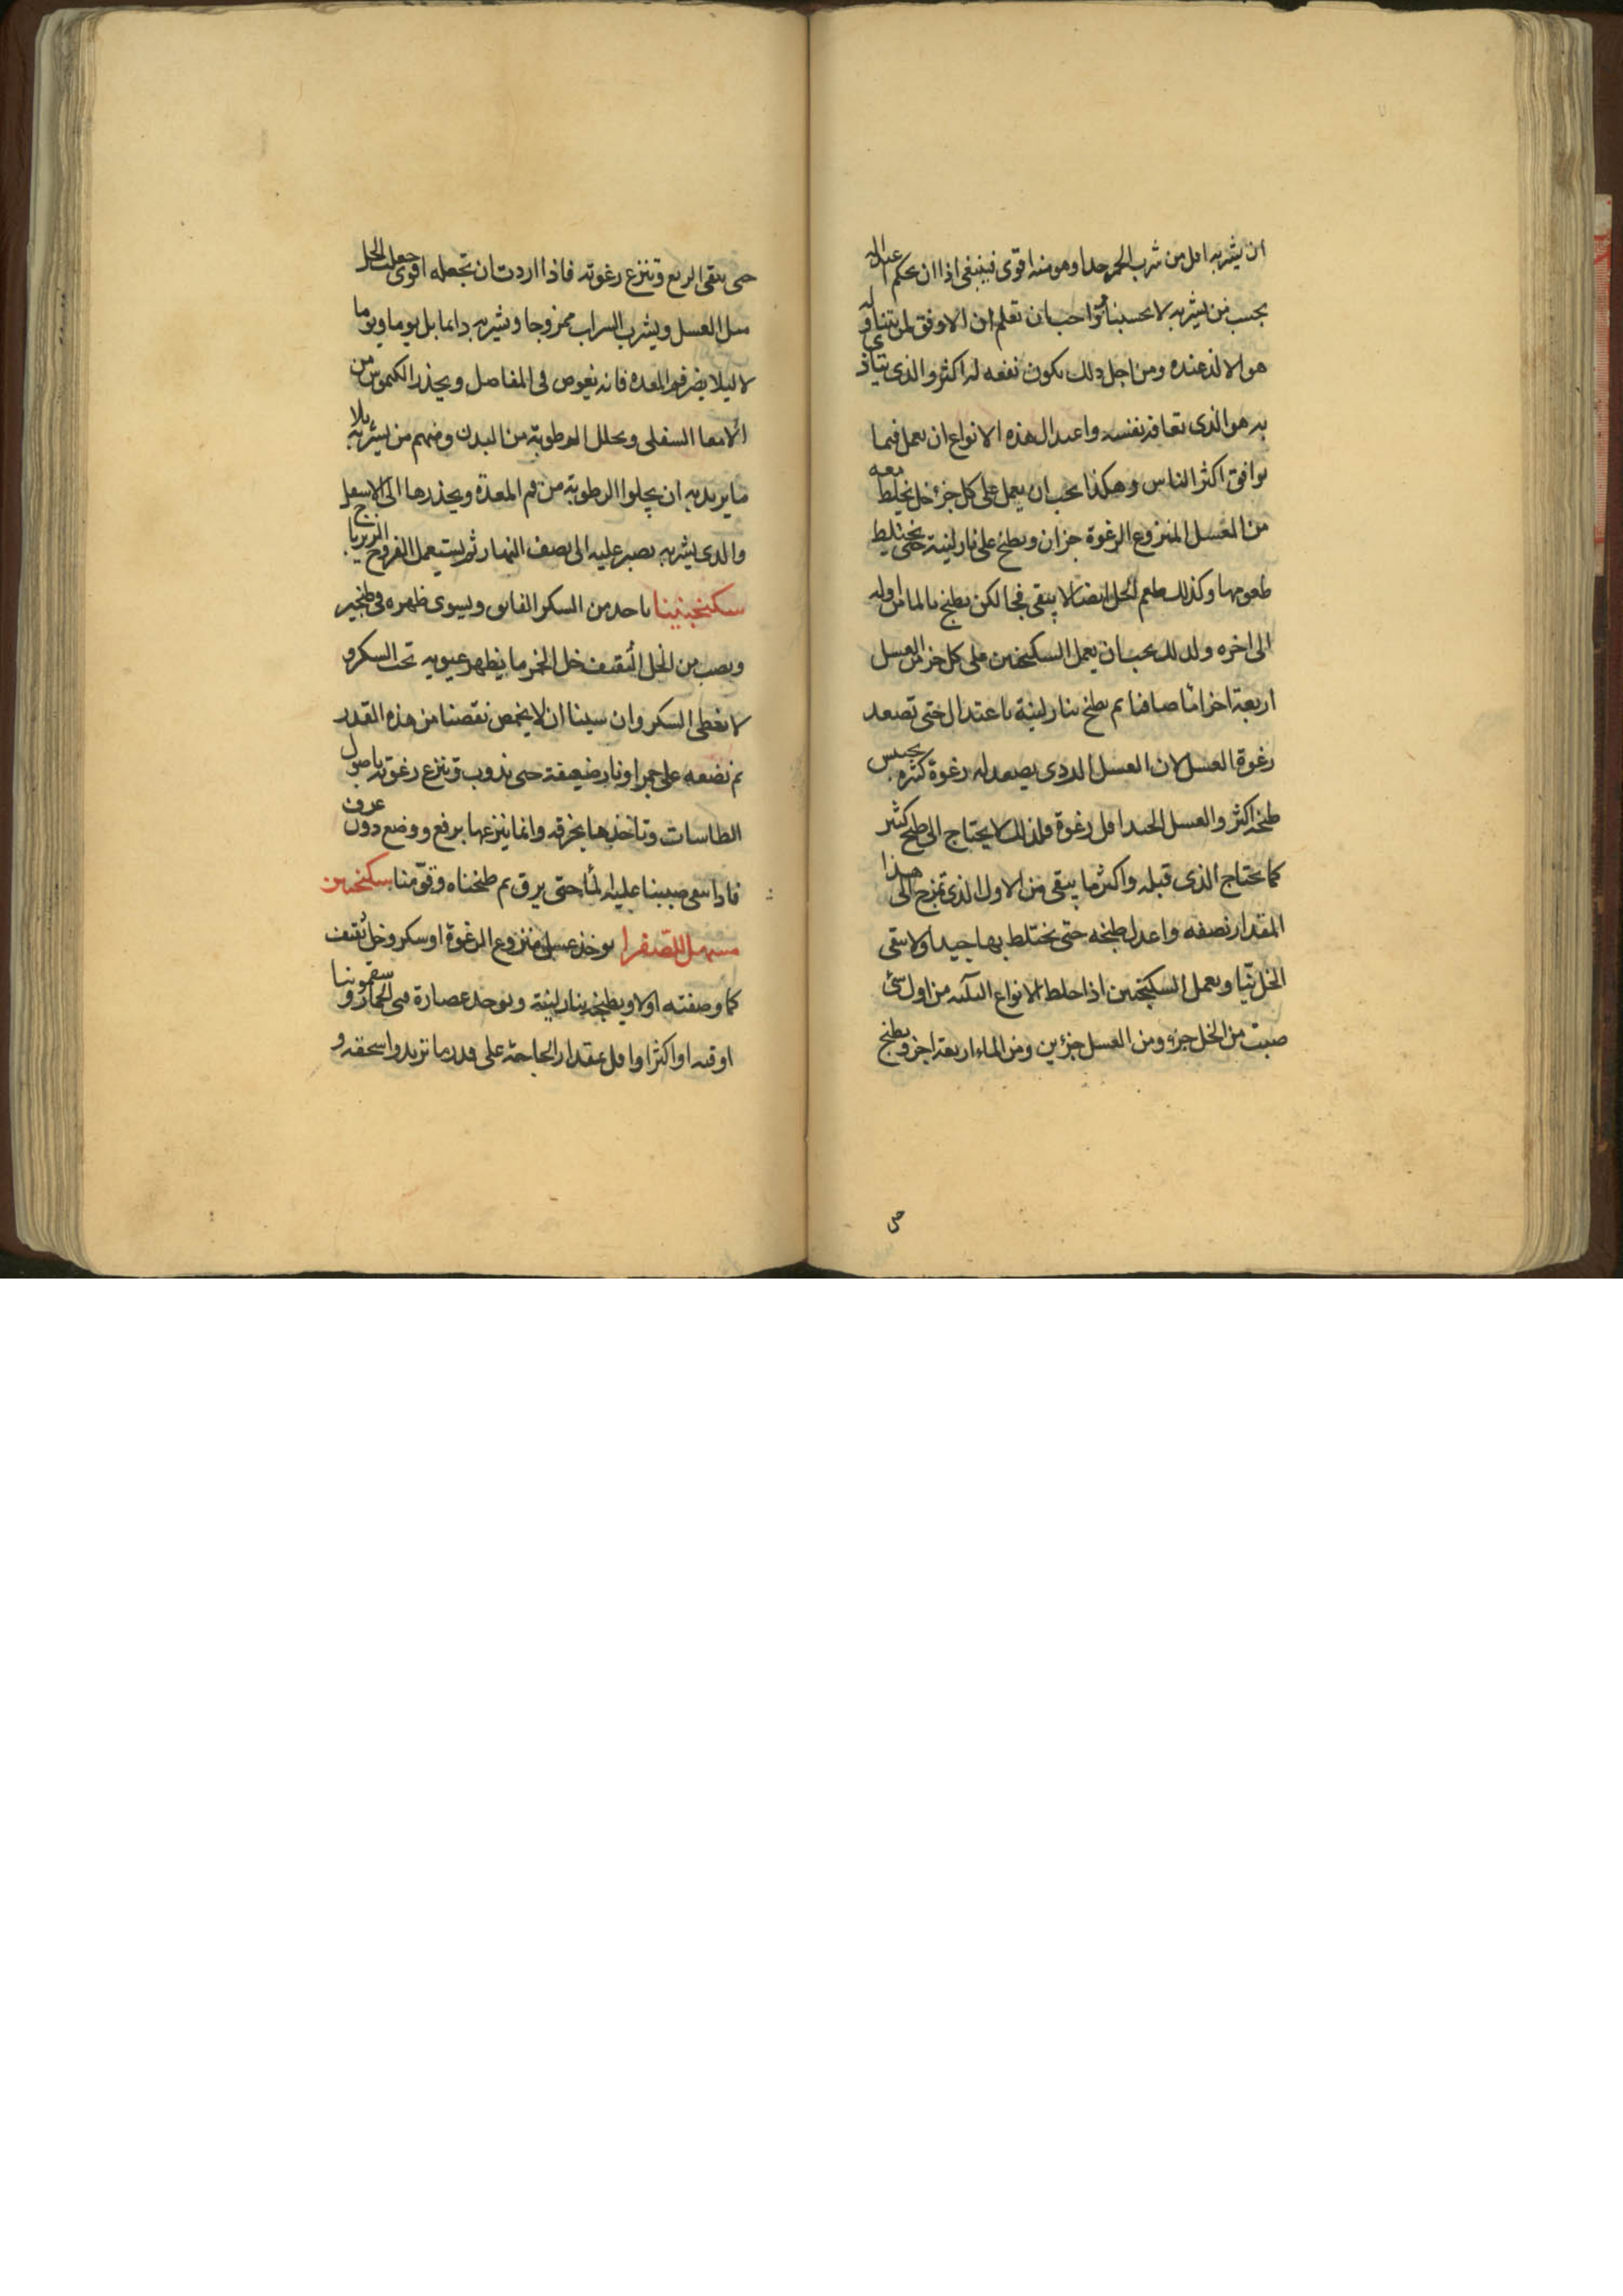 ان يشربه اقل من شرب الخمر جدا وهو منه اقوى فينبغى اذا ان يحكم عنداله
بحسب من يشربه لا بحسبنا نحن واحب ان تعلم ان الاوفق لمن يتناوله
هو الالذ عنده ومن اجل ذلك يكون نفعه له اكثر والذى يتاذى
به هو الذى تعافه نفسه واعدل هذه الانواع ان يعمل فيما
يوافق اكثر الناس وهكذا يجب ان يعمل على كل جزء خل يخلط معه
من العسل المنزوع الرغوة جزان ويطبخ على نار لينة حتى يختلط
طعومها وكذلك طعم الخل ايضا لا يبقى فجا لكن يطبخ بالما من اوله
الى اخره ولذلك يجب ان يعمل السكنجبين على كل جز من العسل
اربعة اجزا ما صافيا ثم يطبخ بنار لينة باعتدال حتى تصعد
رغوة العسل لان العسل الردى يصعد له رغوة كثيره بحبس
طبخه اكثر والعسل الجيد اقل رغوة ولذلك لا يحتاج الى طبخ كثير
كما يحتاج الذى قبله واكثر ما يبقى من الاول الذى تمزج الى هذا
المقدار نصفه واعدل طبخه حتى يختلط بها جيدا ولا يبقى
الخل نيا ويعمل السكنجبين اذا خلط الانواع الثلثه من اول شئ
صببت من الخل جزء ومن العسل جزءين ومن الماء اربعة اجز ويطبخ
حى
حتى يبقى الربع وتنزع رغوته فاذا اردت ان تجعله اقوى جعلت الخل
مثل العسل ويشرب الشراب ممزوجا ويشربه دايما بل يوما ويوما
لا ليلا يضر فم المعده فانه يغوص فى المفاصل ويحذر الكيموس من
الامعا السفلى ويحلل الرطوبة من البدن ومنهم من يشربه بلا
ما يريد به ان يجلوا الرطوبة من فم المعدة ويحذرها الى الاسفل
والذى يشربه يصبر عليه الى نصف النهار ثم يستعمل الفروج الزيرباج
سكنجبينينا ياخذ من السكر الفايق ويسوى ظهره فى طنجير
ويصب من الخل الثقيف خل الخمر ما يظهر عيونه تحت السكر و
لا نغطى السكر وان سينا ان لا يحمض نقصنا من هذه القدر
ثم نضعه على جمر او نار ضعيفة حتى يذوب وتنزع رغوته باصول
الطاسات وتاخذها بخرقه وانما ينزعها برفع ووضع دون غرف
فاذا نقى صببنا عليه الما حتى يرق ثم طبخناه وقومنا سكنجبين
مسهل للصفرا يوخذ عسل منزوع الرغوة او سكر وخل ثقيف
كما وصفته اولا ويطبخه بنار لينة ويوخذ عصارة قثى الحمار و سقمونيا
اوقيه او اكثر او اقل بمقدار الحاجة على قدر ما تريد واسحقه و